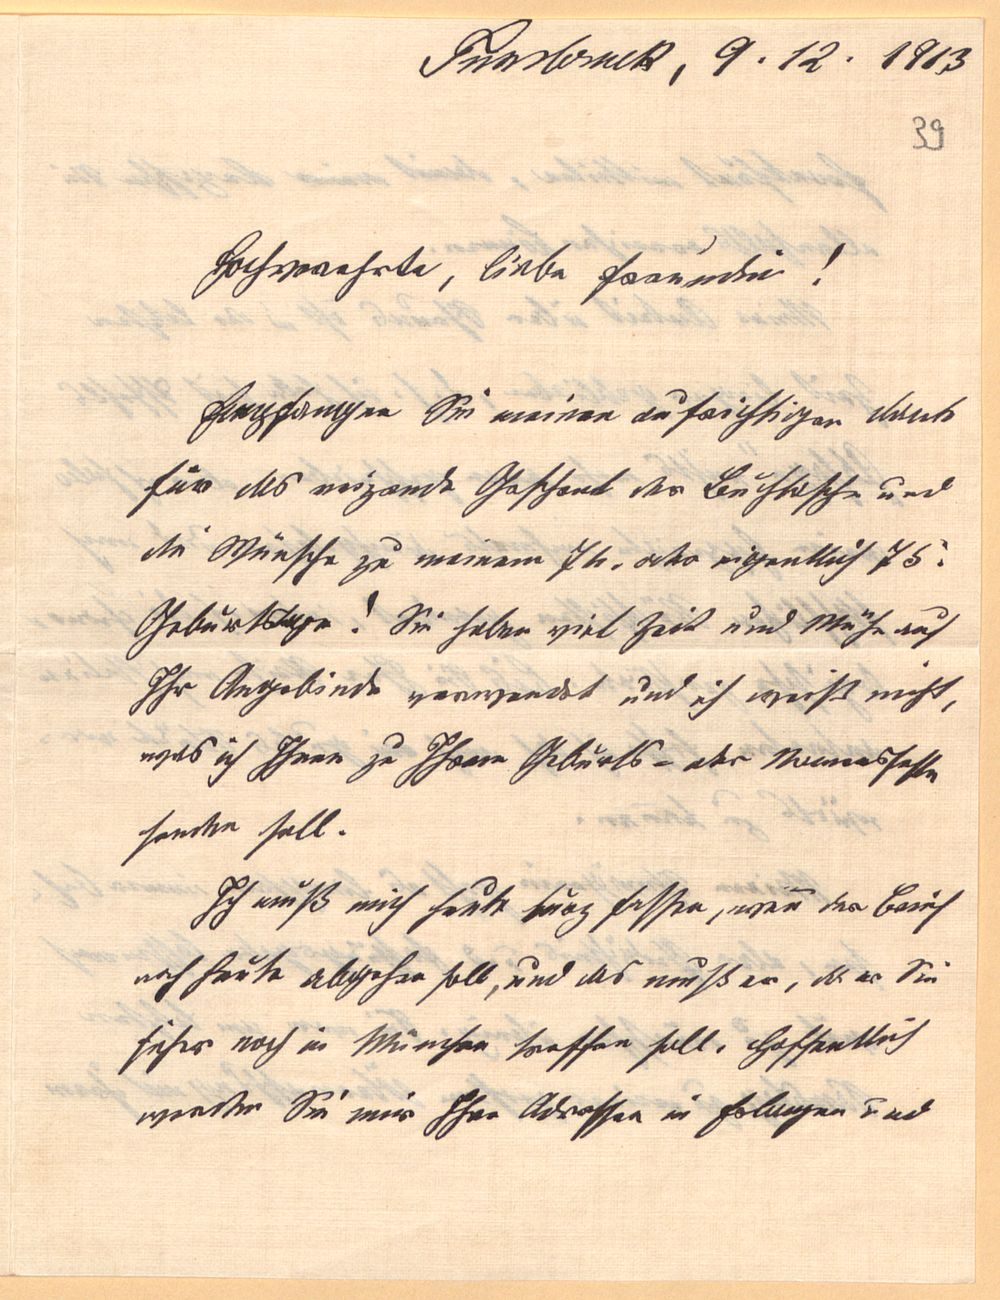 Innsbruck, 9. 12. 1913
39
Hochverehrte, liebe Freundin!
Empfangen Sie meinen aufrichtigen Dank
für das reizende Geschenk der Buchtasche und
die Wünsche zu meinem 74. oder eigentlich 75.
Geburtstage! Sie haben viel Zeit und Mühe auf
Ihr Angebinde verwendet und ich weiß nicht,
was ich Ihnen zu Ihrem Geburts- oder Namensfeste
senden soll.
Ich muß mich heute kurz fassen, wenn der Brief
noch heute abgehen soll, und das muß er, da er Sie
sicher noch in München treffen soll. Hoffentlich
werden Sie mir Ihre Adressen in Erlangen und